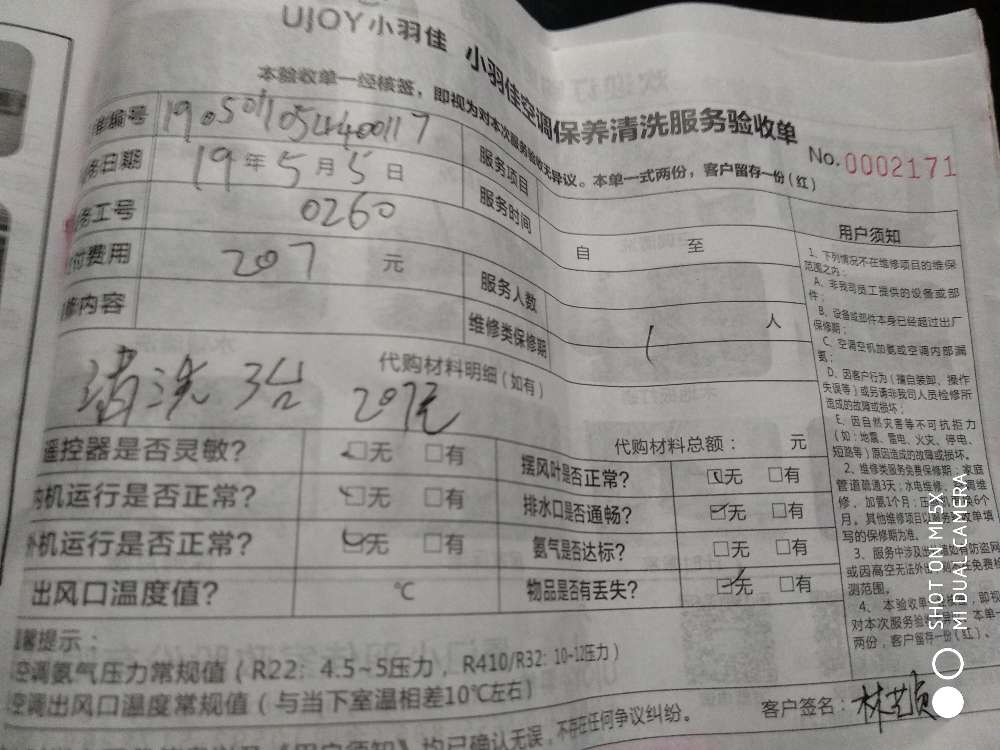 UJOY小羽佳 小羽佳空调保养清洗服务验收单
本验收单一经核签，即视为对本次服务验收无异议。本单一式两份，客户留存一份(红)
No.0002171
编号 19050110544400117 服务项目
务日期 19年5月5日 服务时间 自 至
务工号 0260
付费用 207元 服务人数 1人
修内容 维修类保修期
代购材料明细(如有)
清洗 3台 207元
代购材料总额： 元
遥控器是否灵敏? □无 □有 摆风叶是否正常? □无 □有
内机运行是否正常? □无 □有 排水口是否通畅? □无 □有
外机运行是否正常? □无 □有 氨气是否达标? □无 □有
出风口温度值? ℃ 物品是否有丢失? □无 □有
馨提示：
空调氨气压力常规值（R22：4.5~5压力，R410/R32：10-12压力）
空调出风口温度常规值（与当下室温相差10℃左右）
《用户须知》均已确认无误，不存在任何争议纠纷。
客户签名：林艺贞
用户须知
1、下列情况不在维修项目的维保
范围之内：
A、非我司员工提供的设备或部
件；
B、设备或部件本身已经超过出厂
保修期；
C、空调空机加氨或空调内部漏
氨；
D、因客户行为（擅自装卸、操作
失误等）或另请非我司人员检修所
造成的故障或损坏；
E、因自然灾害等不可抗拒力
（如：地震、雷电、火灾、停电、
短路等）原因造成的故障或损坏。
2、维修类服务免费保修期：家庭
管道疏通3天；水电维修、空调维
修、加氨1个月；
月。其他维修项目以服务单填
写的保修期为准。
3、服务中涉及出 如有防盗网
或因高空无法外出 免费检
测范围。
4、本验收单 核签，即视
对本次服务验 异议。本单一
两份，客户留存一份(红)。
SHOT ON MI 5X
MI DUAL CAMERA